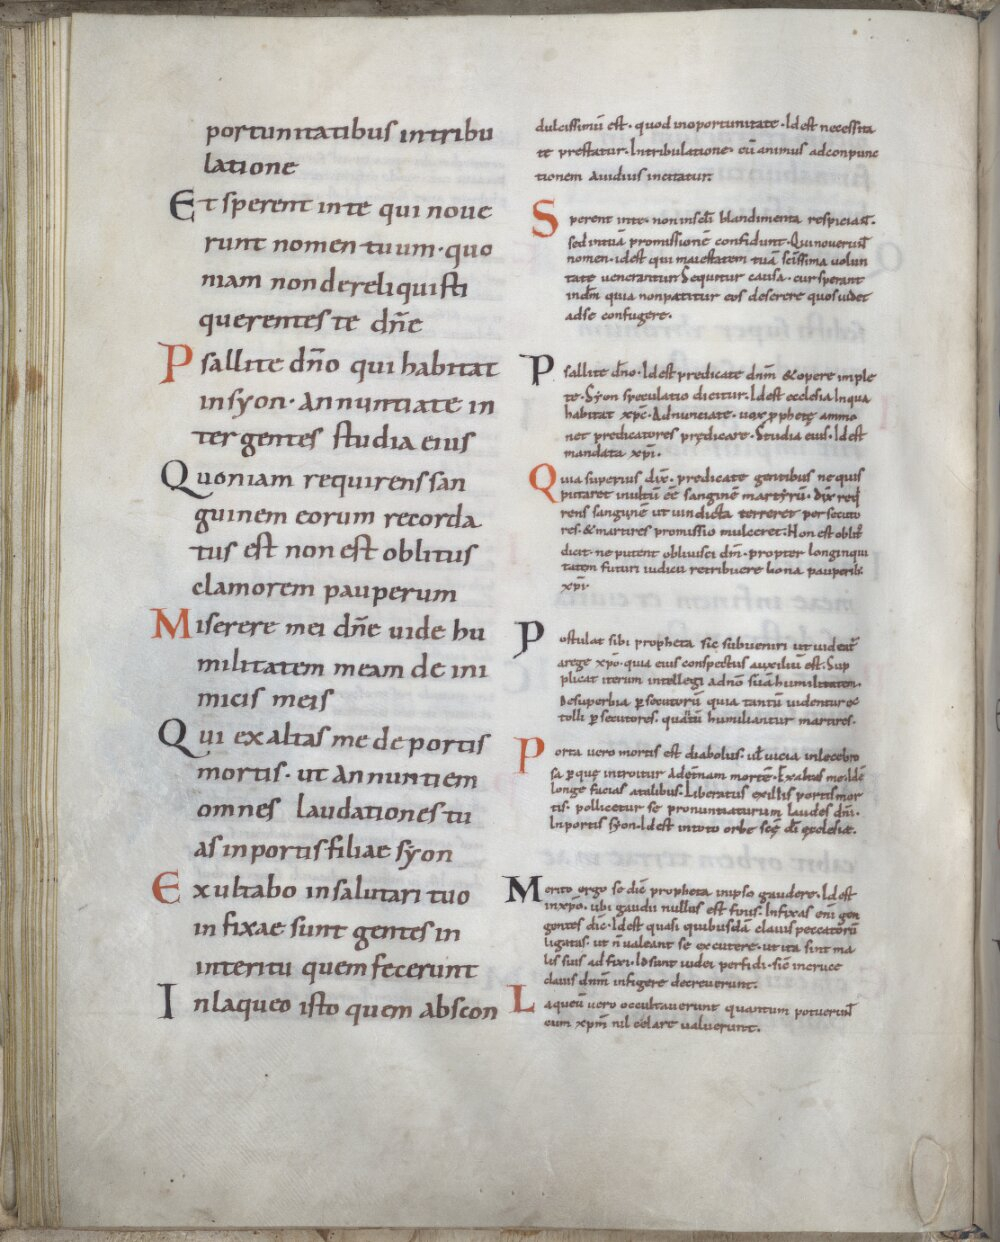 portunitatibus intribu
latione
Et sperent inte qui noue
runt nomen tuum · quo
niam non dereliquisti
querentes te dñe
Psallite dño qui habitat
insyon · Annuntiate in
ter gentes studia eius
Quoniam requirens san
guinem eorum recorda
tus est non est oblitus
clamorem pauperum
Miserere mei dñe uide hu
militatem meam de ini
micis meis
Qui exaltas me de portis
mortis · ut Annuntiem
omnes laudationes tu
as inportis filiae syon
Exultabo insalutari tuo
in fixae sunt gentes in
interitu quem fecerunt
Inlaqueo isto quem abscon
dulcissimū est · quod inoportunitate · Idest necessita
te prestatur · Intribulatione · cū animus adconpunc
tionem Auidius incitatur
Sperent inte · non insc̄li blandimenta respiciant
sed intuā promissionē confidunt · Quinouerunt
nomen · idest qui maiestatem tuā scīssima uolun
tate uenerantur · Sequitur causa · cur sperant
indn̄m quia nonpatitur eos deserere quos uidet
adse confugere ·
Psallite dño · Idest predicate dnm̄ &opere imple
te · Syon speculatio dicitur · Idest ecclesia Inqua
habitat xp̄c · Adnunciate · uox pphetę ammo
net predicatores prędicare · Studia eius · Idest
mandata xpī ·
Quia superius dix̄ · predicate gentibus ne quis
putaret inultū eē sanguinē martyrū · dix̄ req
rens sanguinē ut uindicta terreret persecuto
res · &martires promissio mulceret · Non est oblit
dicit · ne putent obliuisci dnī · propter longinqui
tatem futuri iudicii retribuere bona pauperib:
xpī
Postulat sibi propheta sic subueniri ut uideat
arege xpō · quia eius conspectus auxiliū est · Sup
plicat iterum intellegi adnō suā humilitatem ·
Desuperbia psecutorū quia tantū uidentur ex
tolli psecutores · quātū humiliantur martires ·
Porta uero mortis est diabolus · uł uicia inlecebro
sa pquę introitur Adęternam mortē · Exaltas me · Idē
longe facias atalibus · Liberatus exillis portis mor
tis · pollicetur se pronuntiaturum laudes dnī ·
Inportis syon · Idest intoto orbe scę dī ęcclesiæ ·
Merito ergo se dic̄ propheta inipso gaudere · Idest
inxpō · ubi gaudii nullus est finis · Infixas enī gen
gentes dic̄ · Idest quasi quibusdā clauis peccatorū
ligatas · ut n̄ualeant se excutere · ut ita sint ma
lis suis adfixi · Idsunt iudei perfidi · sic̄ incruce
clauis dnm̄ infigere decreuerunt ·
Laqueū uero occultauerunt quantum potuerunt
cum xpm̄ nil celare ualuerunt ·